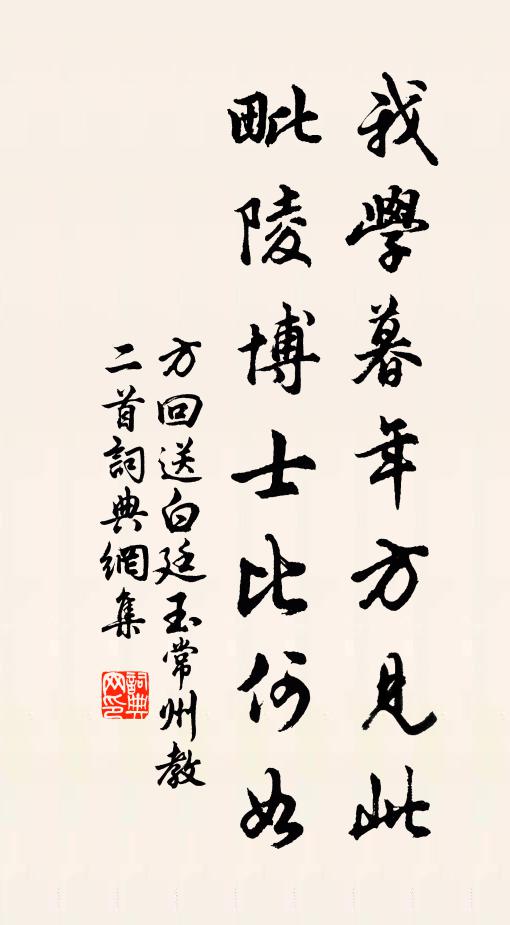 我學暮年方見此
毗陵博士比何如
方回送白廷玉常州教
二首詞典網集
詞典
網印